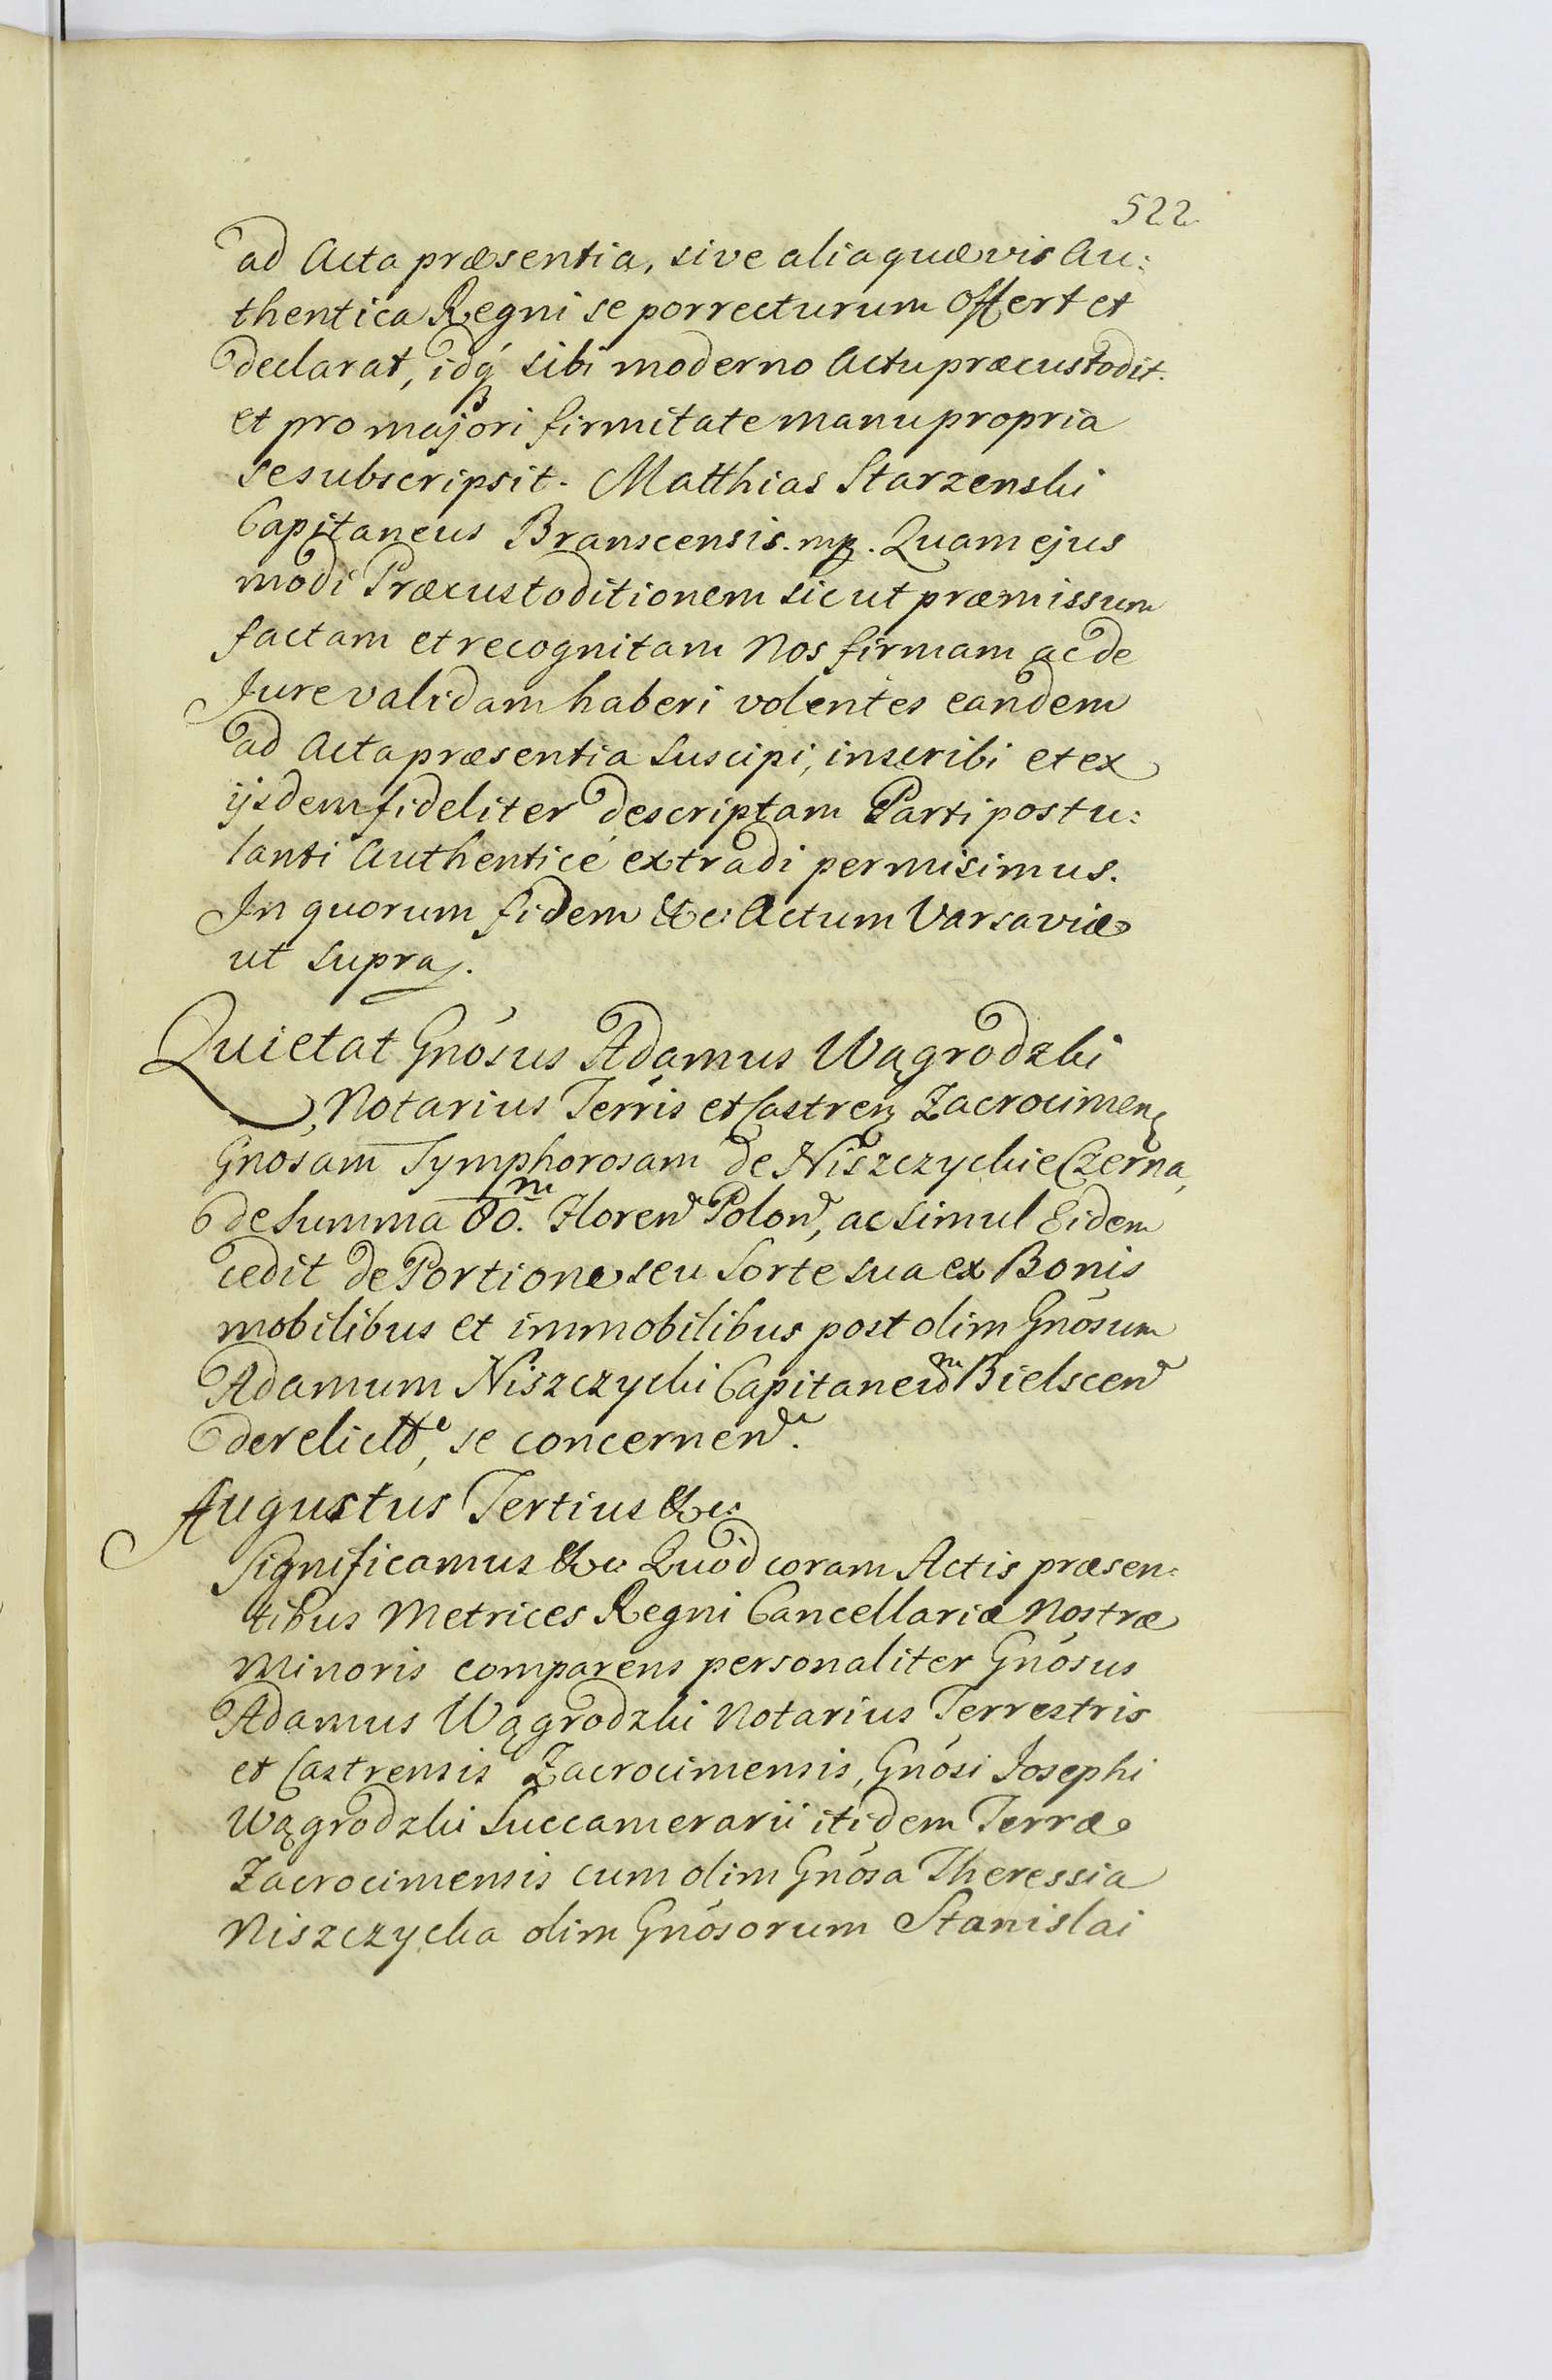 522.
ad Acta præsentia, sive alia quævis Au:
thentica Regni se porrecturum offert et
declarat, idq́ₔ sibi moderno Actu præcustodit.
et pro majori firmitate manu propria
se subscripsit. Matthias Starzenski
Capitaneus Branscensis. mp. Quam ejus
modi Præcustoditionem sicut præmissum
factam et recognitam Nos firmam ac de
Jure validam haberi volentes eandem
ad Acta præsentia suscipi, inscribi et ex
ijsdem fideliter descriptam Parti postu:
lanti Authenticé extradi permisimus.
In quorum fidem &c: Actum Varsaviæ
ut supra.
Quietat Gnósus Adamus Wągrodzki
Notarius Terris et Castren Zacrocimen
Gnosam Symphorosam de Niszczyckie Czerną,
de Summa 80.m Floren Polon, ac simul Eidem
cedit de Portione seu Sorte sua ex Bonis
mobilibus et immobilibus post olim Gnósum
Adamum Niszczycki Capitaneum Bielscen
derelict, se concernen.
Augustus Tertius &c:
Significamus &c: Quòd coram Actis præsen:
tibus Metrices Regni Cancellariæ Nostræ
Minoris comparens personaliter Gnósus
Adamus Wągrodzki Notarius Terrestris
et Castrensis Zacrocimensis, Gnósi Josephi
Wągrodzki Succamerarii itidem Terræ
Zacrocimensis cum olim Gnósa Theressia
Niszczycka olim Gnósorum Stanislai